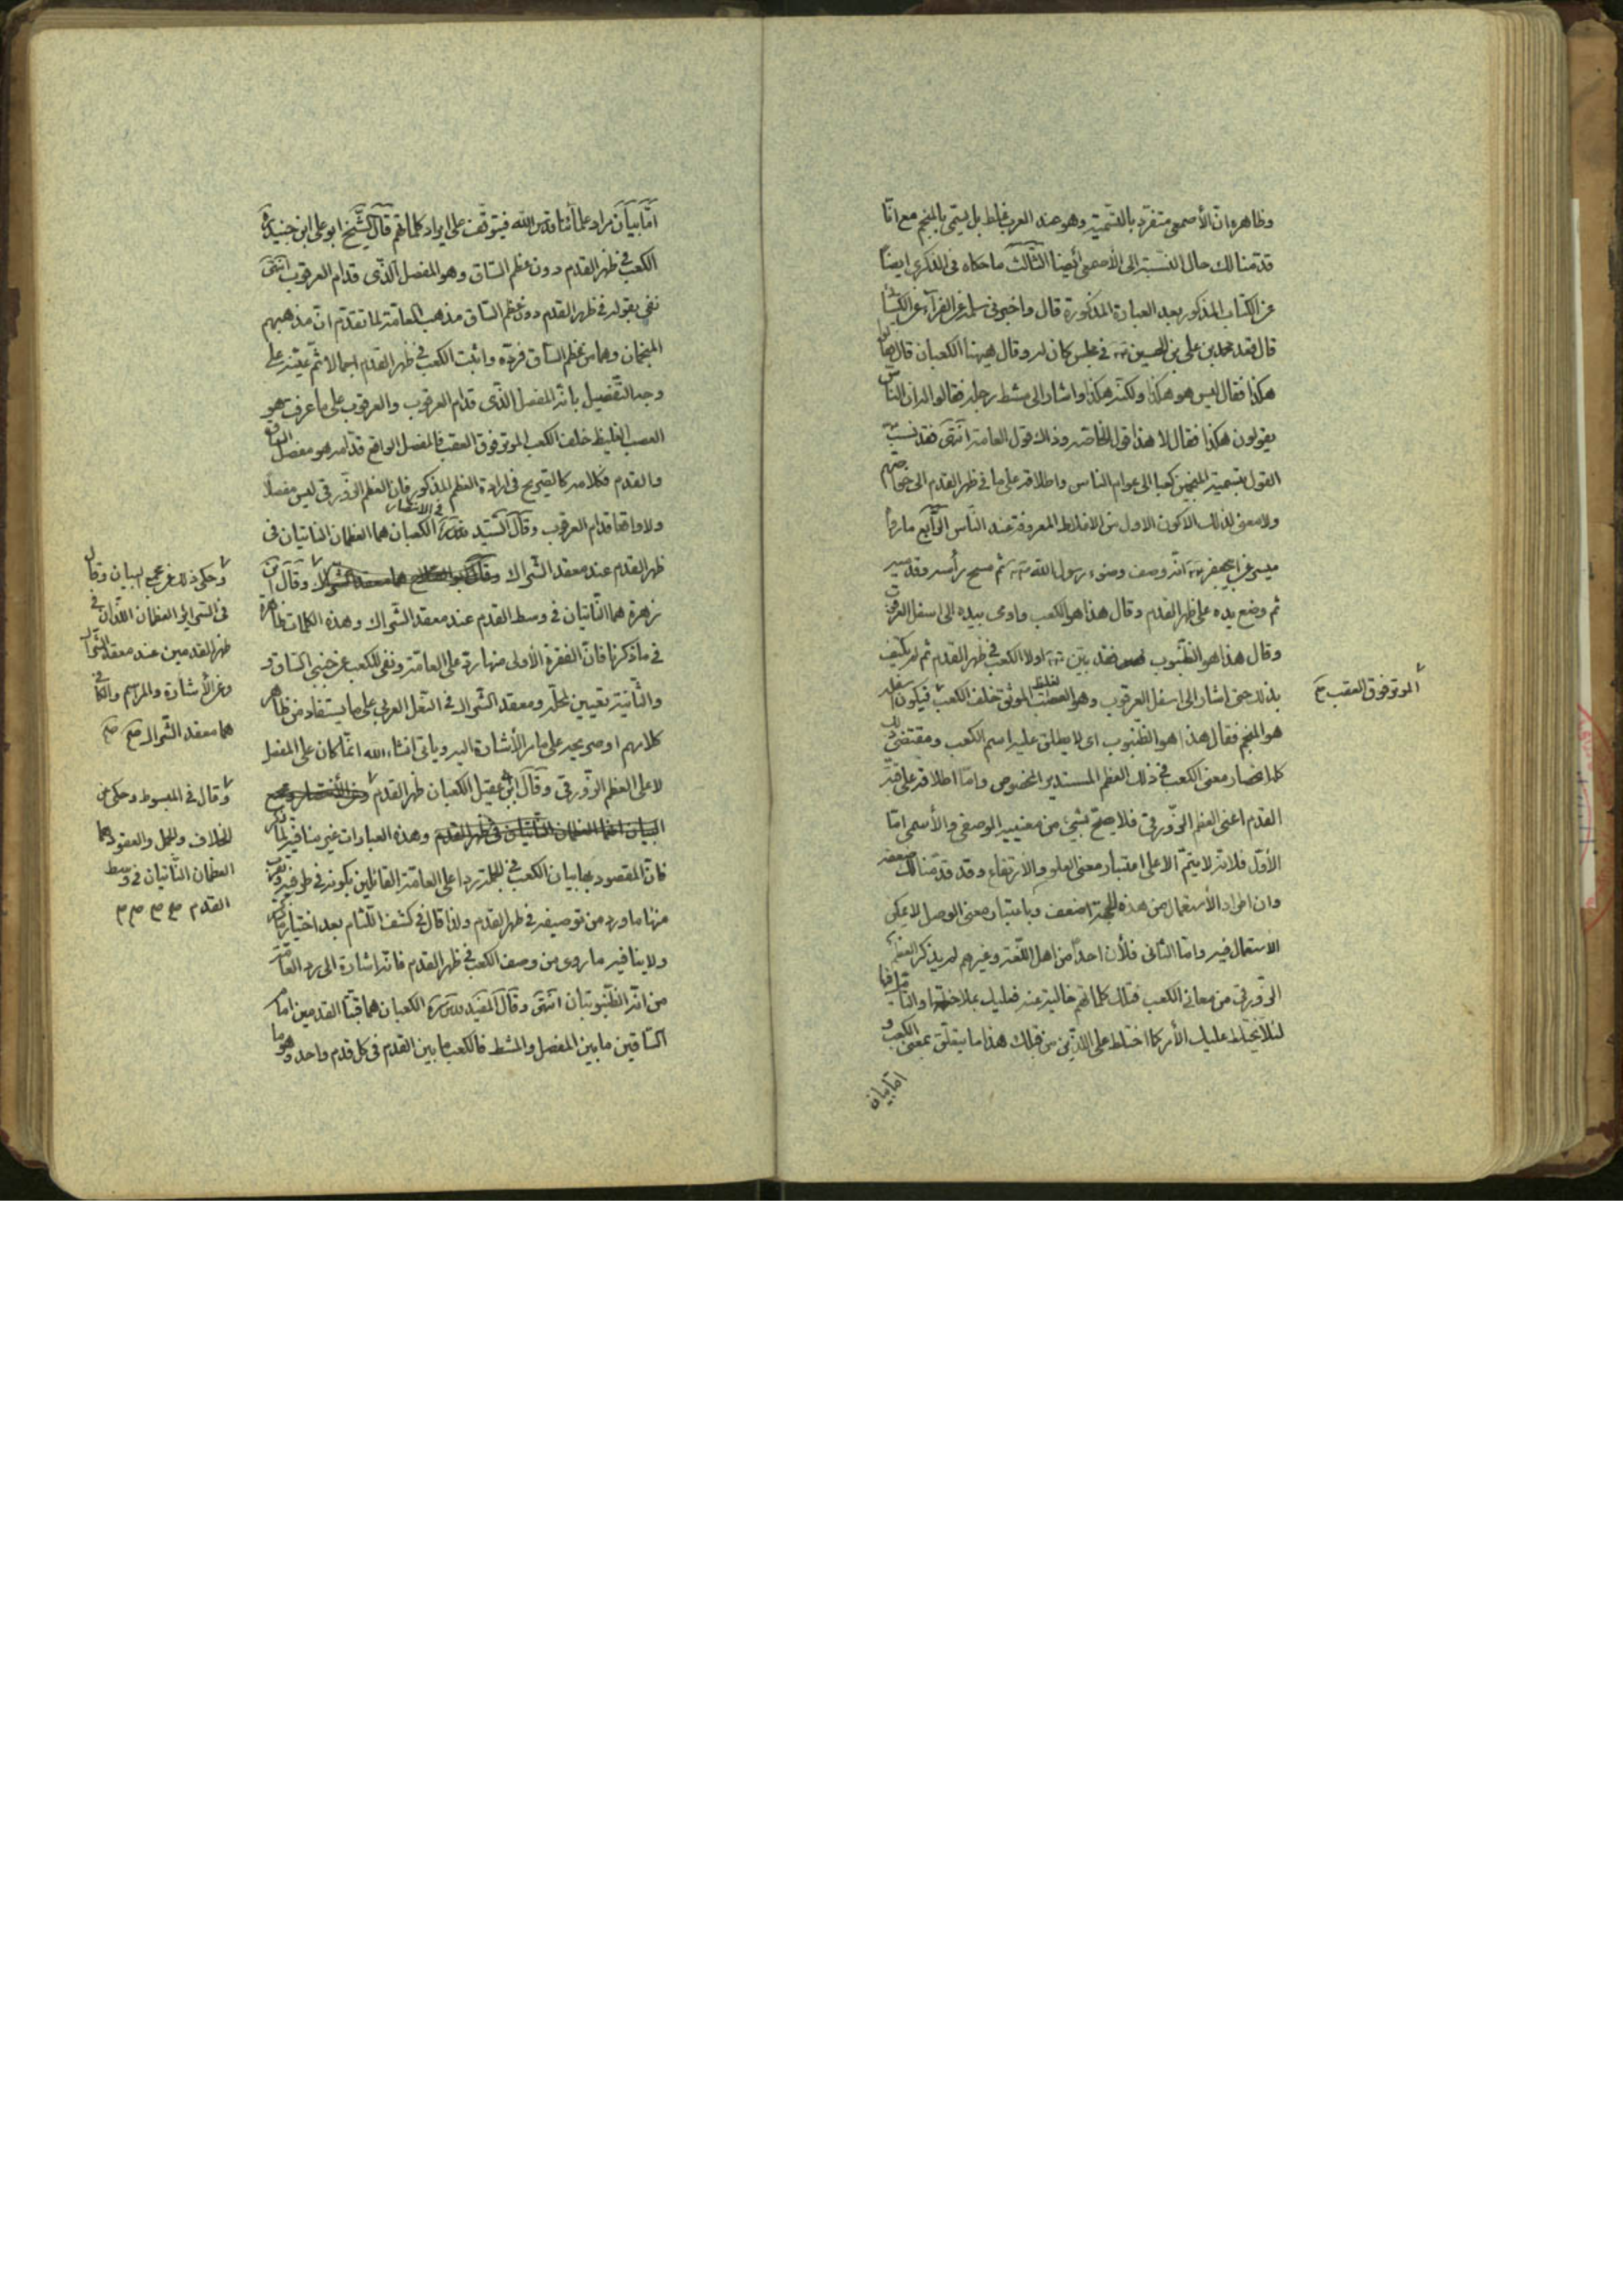 وظاهره انّ الأصمعي متفرّد بالتسمية وهو عند العرب غلط بل يسمّى بالمنجم مع انّا
قدّمنا لك حال النسبة الى الأصمعي أيضا الثّالث ما حكاه في الذكرى ايضاً
عن الكتاب المذكور بعد العبارة المذكورة قال واخبرني سلمة عن الفرآء عن الكسائي
قال قعد محمد بن علي بن الحسين في مجلس كان له وقال ههنا الكعبان قال فقالوا
هكذا فقال ليس هو هكذا ولكنه هكذا واشار الى مشط رجله فقالوا له ان الناس
يقولون هكذا فقال لا هذا قول الخاصة وذاك قول العامة انتهى فقد نسب
القول بتسمية المنجمين كعبا الى عوام الناس واطلاقه على ما في ظهر القدم الى خواصهم
ولا معنى لذلك الا كون الاول من الاغلاط المعروفة عند النّاس الرّابع ما رواه
ميسر عن ابيجعفر انّه وصف وضوء رسول الله ثم مسح رأسه وقدميه
ثم وضع يده على ظهر القدم وقال هذا هو الكعب واومى بيده الى اسفل العرقوب
وقال هذا هو الظنبوب فقد بيّن اولا الكعب في ظهر القدم ثم لم يكتف
بذلك حتى اشار الى اسفل العرقوب وهو العصب الغليظ الموثق خلف الكعب فيكون اسفله
الموتر فوق العقب صح
هو المنجم فقال هذا هو الظنبوب اى لا يطلق عليه اسم الكعب ومقتضى ذلك
كله انحصار معنى الكعب في ذلك العظم المستدير المخصوص وامّا اطلاقه على قبّة
القدم اعنى العظم الزّورقي فلا يصحّ بشيء من معنييه الوصفي والأسمي امّا
الأوّل فلانّه لا يتمّ الا على اعتبار معنى العلو والارتفاع وقد قدّمنا لك ضعفه
وان اطراد الأستعمال من هذه الجهة اضعف وباعتبار معنى الوصل لا يمكن
الاستعمال فيه وامّا الثاني فلأن احداً من اهل اللّغة وغيرهم لم يذكر العظم
الزورقي من معاني الكعب فتلك كلماتهم خالية عنه فعليك بملاحظتها والتأمل فيها
لئلّا يختلط عليك الأمر كما اختلط على الذين من قبلك هذا ما يتعلّق بمعنى الكعب و
امّا بيان
امّا بيان مراد علمائنا قدس الله فيتوقّف على ايراد كلماتهم قال الشّيخ ابو على ابن جنيد ره
الكعب في ظهر القدم دون عظم السّاق وهو المفصل الّذى قدام العرقوب انتهى
نفى بقوله في ظهر القدم دون عظم السّاق مذهب العامّة لما تقدّم انّ مذهبهم
المنجمان وهما من عظم السّاق فردّه واثبت الكعب في ظهر القدم اجمالا ثمّ عيّنه على
وجه التّفصيل بانّه المفصل الّذى قدام العرقوب والعرقوب على ما عرفت هو
العصب الغليظ خلف الكعب الموتر فوق العقب فالمفصل الواقع قدّامه هو مفصل الساق
والقدم فكلامه كالصّريح في ارادة العظم المذكور فان العظم الزّورقي ليس مفصلاً
ولا واقعا قدام العرقوب وقال السّيد قدس سره في الانتصار الكعبان هما العظمان الناتيان في
ظهر القدم عند معقد الشّراك وقال ابن
زهرة هما النّاتيان في وسط القدم عند معقد الشّراك وهذه الكلمات ظاهرة
في ما ذكرنا فانّ الفقرة الأولى منها ردّ على العامّة ونفى للكعب عن جنبي السّاق و
والثّانية تعيين لمحلّه ومعقد الشّراك في النّعل العربي على ما يستفاد من ظاهر
كلامهم او صريحه على ما مرّ الأشارة اليه ويأتي انشاء الله انّما كان على المفصل
لا على العظم الزّورقي وقال ابن عقيل الكعبان ظهر القدم
وهذه العبارات غير منافية لما ذكر
فانّ المقصود بها بيان الكعب في الجملة ردا على العامّة القائلين بكونه في طرفيه
منها ما ورد من توصيفه في ظهر القدم ولذا قال في كشف اللّثام بعد اختيار
ولا ينافيه ما روى من وصف الكعب في ظهر القدم فانّه اشارة الى رد العامّة
من انّه الظّنبوبان انتهى وقال المفيد قدس سره الكعبان هما قبّتا القدمين امام
السّاقين ما بين المفصل والمشط فالكعب ما بين القدم في كل قدم واحد وهو ما
وحكى ذلك عن مجمع البيان وقال
في السّرائر العظمان اللّذان في
ظهر القدمين عند معقد الشّراك
وعن الأشارة والمراسم والكافي
هما معقد الشّراك صح صح
وقال في المبسوط وحكى عن
الخلاف والجمل والعقود هما
العظمان النّاتيان في وسط
القدم صح صح صح